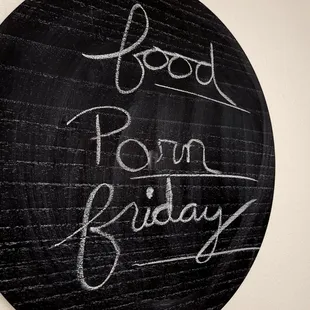 food
Porn
friday